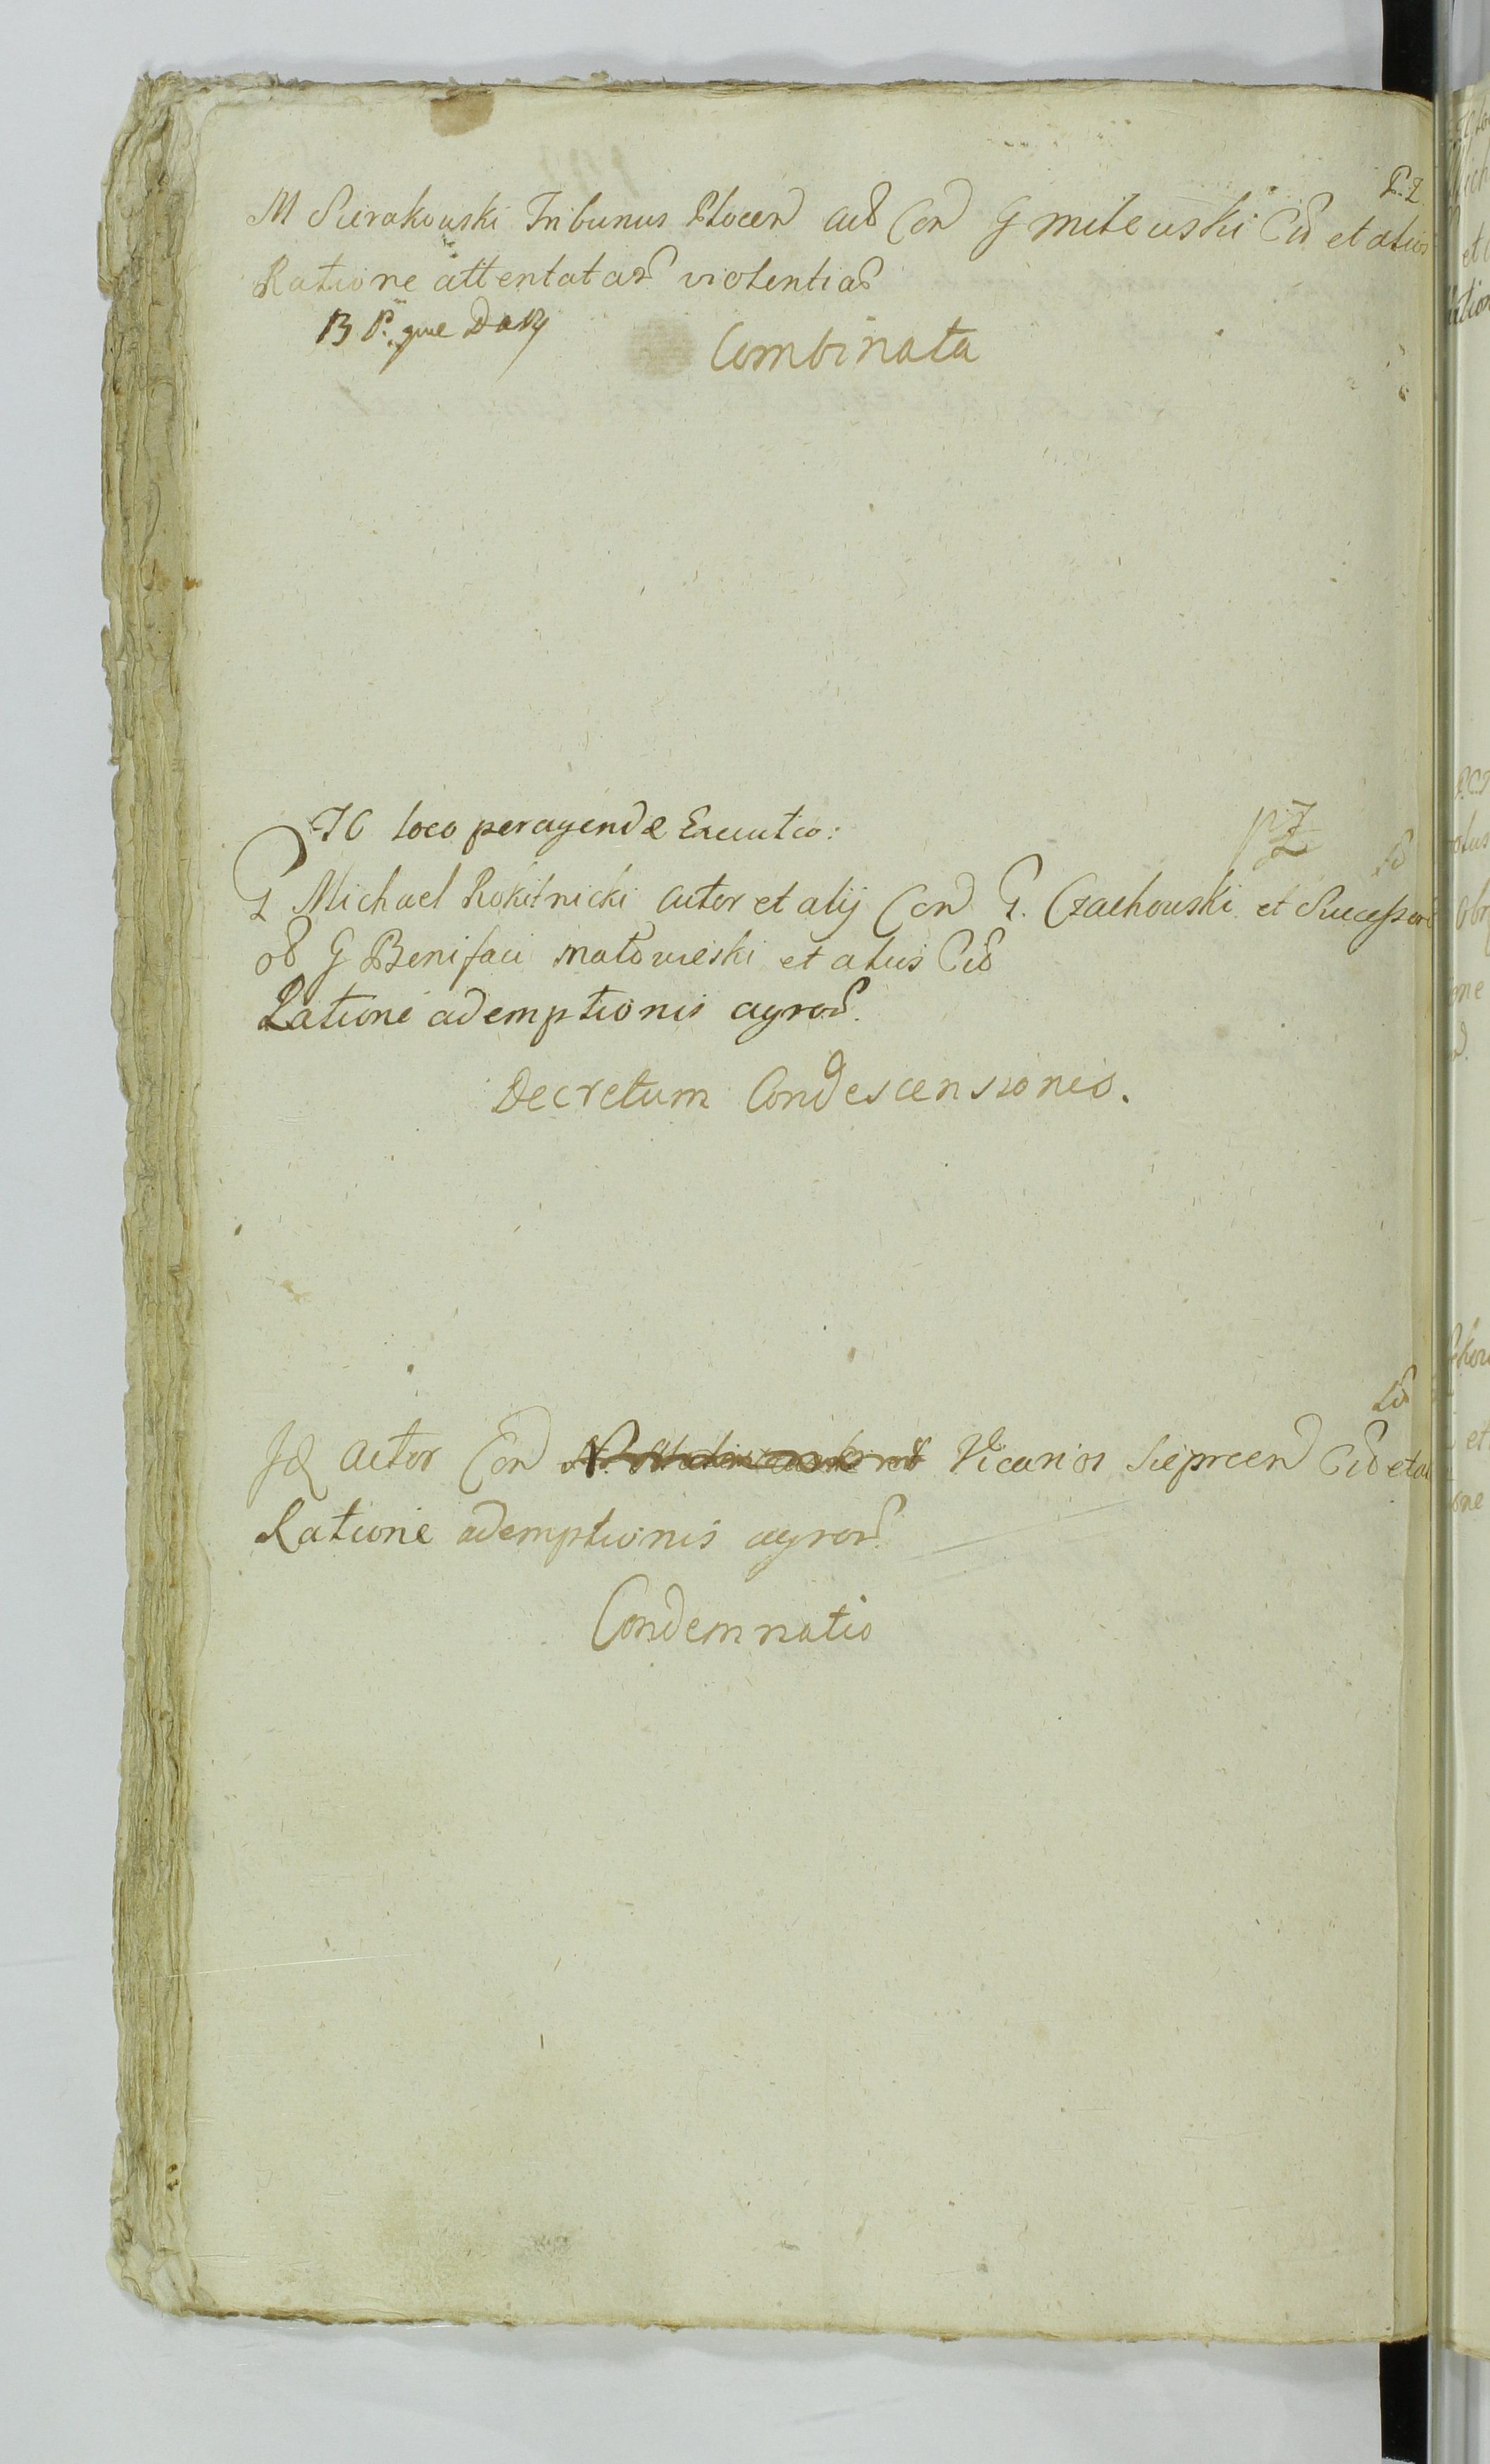 P. Z.
M Sierakowski Tribunus Plocen act Con G Milewski Cit et alios
Ratione attentatar violentiar
B P. que D a R
Combinata
IC loco peragendæ Executio:
pZ
G Michael Rokitnicki actor et alij Con G. Czachowski et Successor
ob G Benifaci Matowieski et alios Cit
Ratione ademptionis agror.
Decretum Condescensionis.
Id Actor Con Vicarios Sieprcen Cit et al
Ratione ademptionis agror
Condemnatio